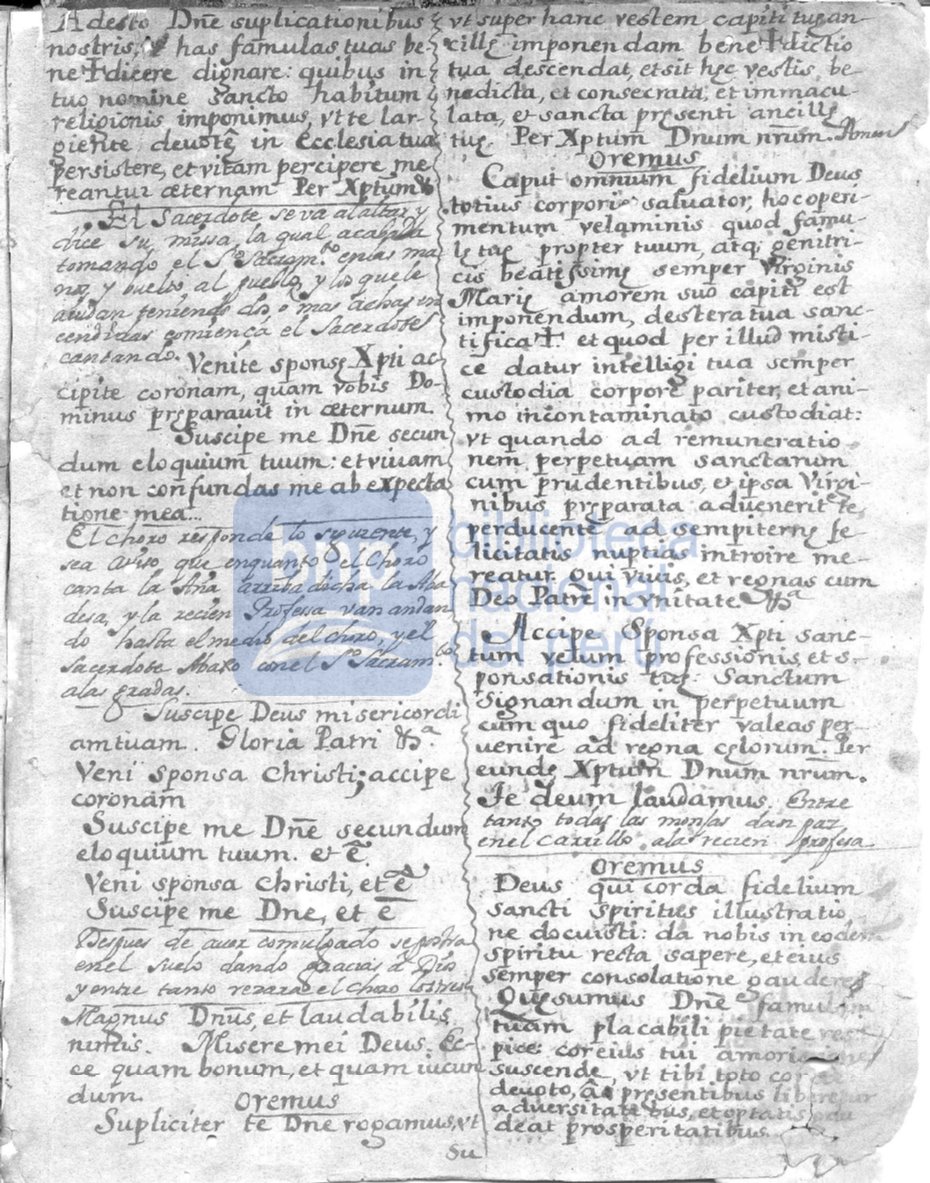 Adesto Dñe suplicationibus
nostris, & has famulas tuas be-
ne✝dicere dignare: quibus in
tuo nomine sancto habitum
religionis imponimus, vt te lar-
giente deuotę in Ecclesia tua
persistere, et vitam percipere me
reantur æternam Per Xptum
El Sacerdote se va al altar, y
dice su missa, la qual acabada
tomando el S.º Sacram.to en las ma
nos, y buelto al pueblo, y los que le
aiudan teniendo dos o mas achas en
cendidas comiença el Sacerdotes
cantando. Venite sponsę Xpti ac-
cipite coronam, quam vobis Do-
minus pręparauit in æternum.
Suscipe me Dñe secun
dum eloquium tuum: et viuam
et non confundas me ab expecta
tione mea...
El choro responde lo siguiente, y
sea auiso, que enquanto el Choro
canta la Aña arriba dicha la Aba
desa, y la recien Professa van andan
do hasta el medio del choro, y el
Sacerdote Abaxo con el S.º Sacram.to
a las gradas.
Suscipe Deus misericordi
am tuam. Gloria Patri &.a
Veni sponsa Christi; accipe
coronam
Suscipe me Dñe secundum
eloquium tuum. et c̃.
Veni sponsa christi, et c̃
Suscipe me Dne, et c̃
Despues de auer comulgado se postra
en el suelo dando gracias a Dios
y entre tanto rezara el choro
Magnus Dnũs, et laudabilis
nimis. Misere mei Deus. Ec-
ce quam bonum, et quam iucun
dum.
oremus
Supliciter te Dne rogamus, vt
su
vt super hanc vestem capiti tuę an-
cillę imponendam bene✝dictio
tua descendat, et sit hęc vestis be-
nedicta, et consecrata, et immacu-
lata, et sancta pręsenti ancillę
tuę. Per Xptum Dnum nrum.
oremus
Caput omnium fidelium Deus
totius corporis saluator, hoc operi
mentum velaminis quod famu-
lę tuę propter tuum, atq; genitri-
cis beatissimę semper Virginis
Marię amorem suo capiti est
imponendum, destera tua sanc-
tifica✝ et quod per illud misti-
ce datur intelligi tua semper
custodia corpore pariter, et ani-
mo incontaminato custodiat:
vt quando ad remuneratio
nem perpetuam sanctarum
cum prudentibus, et ipsa Virgi-
nibus pręparata aduenerit te,
perducente ad sempiternę fe
licitatis nuptias introire me-
reatur. Qui viuis, et regnas cum
Deo Patre in vnitate &.a
Accipe Sponsa Xpti sanc-
tum velum professionis, et s-
ponsationis tuę: Sanctum
signandum in perpetuum
cum quo fideliter valeas per
uenire ad regna cęlorum. Per
eundę Xptum Dnum nrum.
Te deum laudamus. Entre
tanto todas las monjas dan paz
en el carrillo a la recien professa
oremus
Deus qui corda fidelium
sancti spiritus illustratio
ne docuisti: da nobis in eodem
spiritu recta sapere, et eius
semper consolatione gaudere
Quęsumus Dñe famulam
tuam placabili pietate res
pice: cor eius tui amoris
suscende, vt tibi toto
deuoto, pręsentibus liberetur
aduersitatebus, et optatis
deat prosperitatibus.
bnp
biblioteca
nacional
del perú